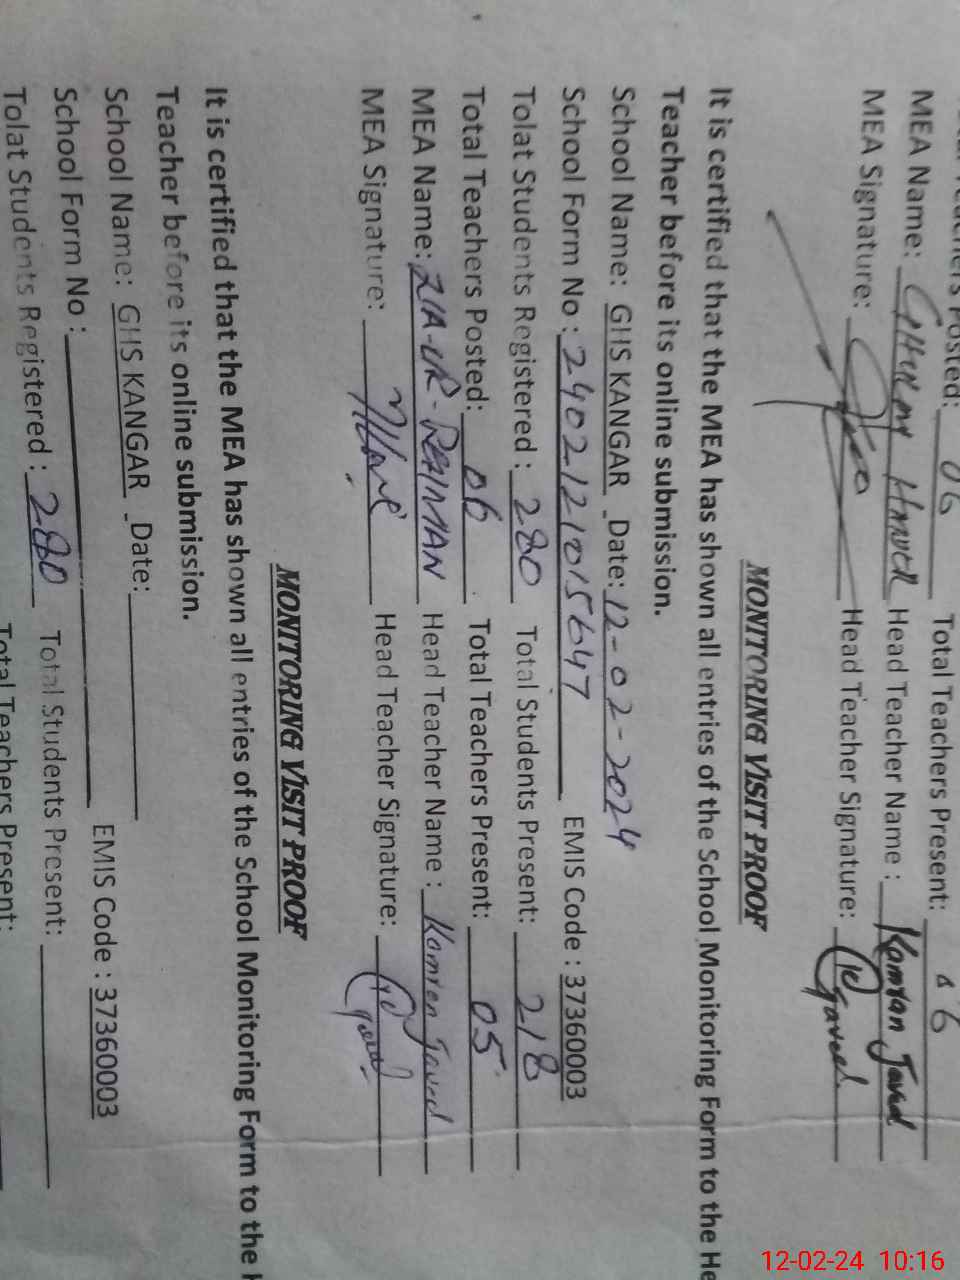 Posted: 06 Total Teachers Present: 06
MEA Name: Head Teacher Name : Kamran Javed
MEA Signature: Head Teacher Signature:
MONITORING VISIT PROOF
It is certified that the MEA has shown all entries of the School Monitoring Form to the He
Teacher before its online submission.
School Name: GHS KANGAR _Date: 12-02-2024 EMIS Code : 37360003
School Form No : 2402121015647
Tolat Students Registered : 280 Total Students Present: 218
Total Teachers Posted: 06 Total Teachers Present: 05
MEA Name: ZIA-UR-REHMAN Head Teacher Name : Kamran Javed
MEA Signature: Head Teacher Signature:
MONITORING VISIT PROOF
It is certified that the MEA has shown all entries of the School Monitoring Form to the H
Teacher before its online submission.
School Name: GHS KANGAR _Date: EMIS Code : 37360003
School Form No :
Tolat Students Registered : 280 Total Students Present:
Total Teachers Present:
12-02-24 10:16